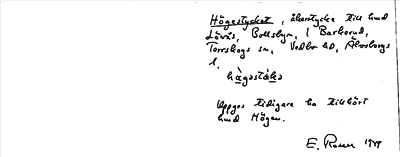 Högestycket, åkerstycke till hmd
Lövås, Bottsbyn, 1 Barkerud,
Torrskogs sn, Vedbo hd, Älvsborgs
l.
hågəstɛ̀kə
Uppges tidigare ha tillhört
hmd Högen.
E. Rosen